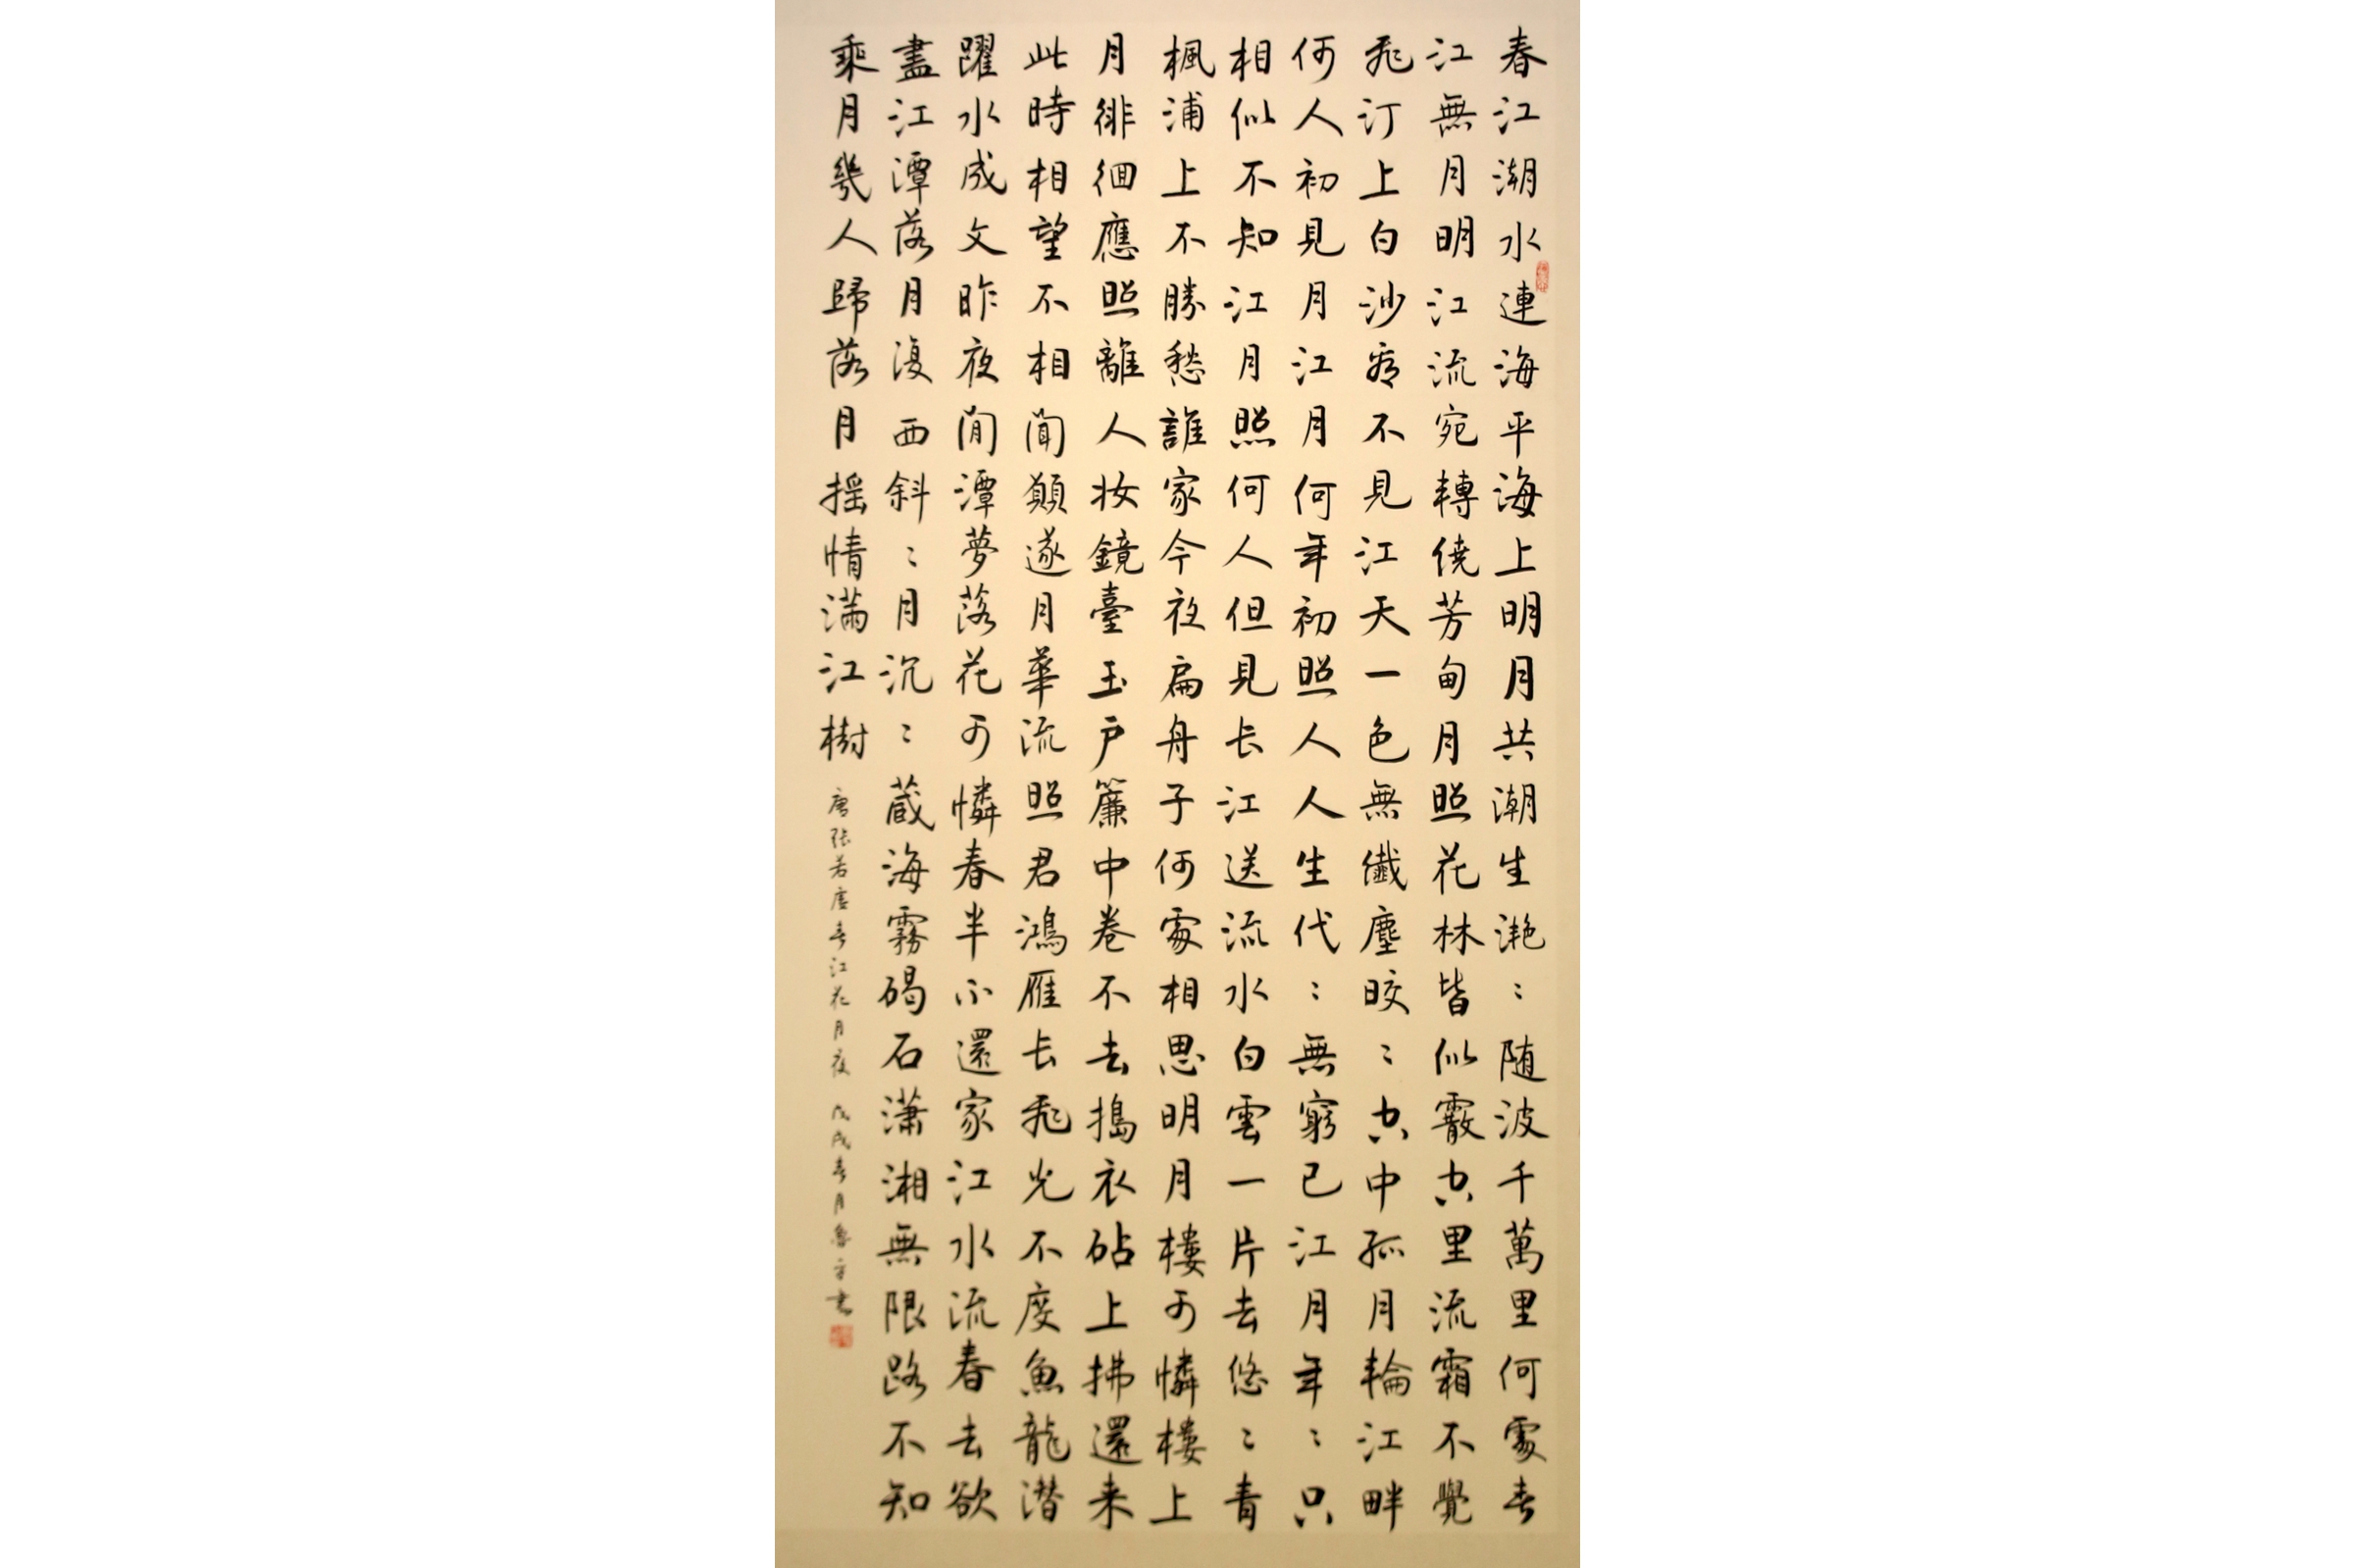 春江潮水連海平海上明月共潮生滟〻随波千萬里何處春
江無月明江流宛轉繞芳甸月照花林皆似霰空里流霜不覺
飛汀上白沙看不見江天一色無纖塵皎〻空中孤月輪江畔
何人初見月江月何年初照人人生代〻無窮已江月年〻只
相似不知江月照何人但見长江送流水白雲一片去悠〻青
楓浦上不勝愁誰家今夜扁舟子何處相思明月樓可憐樓上
月徘徊應照離人妆鏡臺玉戶簾中卷不去搗衣砧上拂還来
此時相望不相聞願逐月華流照君鴻雁长飛光不度魚龍潜
躍水成文昨夜閒潭夢落花可憐春半不還家江水流春去欲
盡江潭落月復西斜〻月沉〻蔵海霧碣石潇湘無限路不知
乘月幾人歸落月摇情满江樹
唐张若虚春江花月夜 戊戌春月魯書